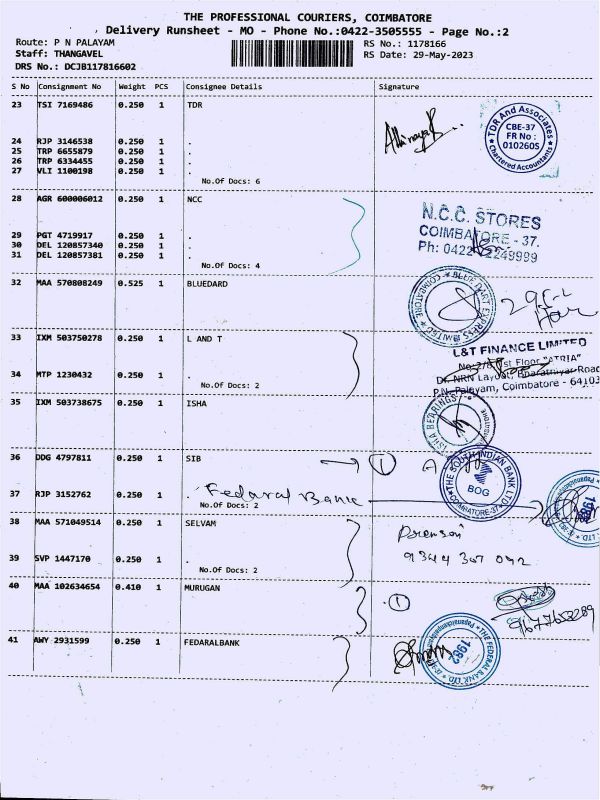 THE PROFESSIONAL COURIERS, COIMBATORE
Delivery Runsheet - MO - Phone No.:0422-3505555 - Page No.:2
Route: P N PALAYAM
Staff: THANGAVEL
DRS No.: DCJB117816602
RS No.: 1178166
RS Date: 29-May-2023
S No Consignment No Weight PCS Consignee Details Signature
23 TSI 7169486 0.250 1 TDR
TDR And Associates
CBE-37
FR No :
010260S
Chartered Accountants
24 RJP 3146538 0.250 1 .
25 TRP 6655879 0.250 1 .
26 TRP 6334455 0.250 1 .
27 VLI 1100198 0.250 1 .
No.Of Docs: 6
28 AGR 600006012 0.250 1 NCC
N.C.C. STORES
COIMBATORE - 37.
Ph: 0422 2249999
29 PGT 4719917 0.250 1 .
30 DEL 120857340 0.250 1 .
31 DEL 120857381 0.250 1 .
No.Of Docs: 4
32 MAA 570808249 0.525 1 BLUEDARD
BLUE DART EXPRESS LIMITED
COIMBATORE
33 IXM 503750278 0.250 1 L AND T
L&T FINANCE LIMITED
1st Floor "ATRIA"
Dr. NRN Layout, Bharathiyar Road
P.N. Palayam, Coimbatore - 64103
34 MTP 1230432 0.250 1 .
No.Of Docs: 2
35 IXM 503738675 0.250 1 ISHA
ISHA BEARINGS
36 DDG 4797811 0.250 1 SIB
1
THE SOUTH INDIAN BANK LTD
BOG
COIMBATORE-37
37 RJP 3152762 0.250 1 . Fedaral Bank
No.Of Docs: 2
38 MAA 571049514 0.250 1 SELVAM
9344 367 092
39 SVP 1447170 0.250 1 .
No.Of Docs: 2
40 MAA 102634654 0.410 1 MURUGAN
1
9677658289
41 AWY 2931599 0.250 1 FEDARALBANK
THE FEDERAL BANK LTD
1982